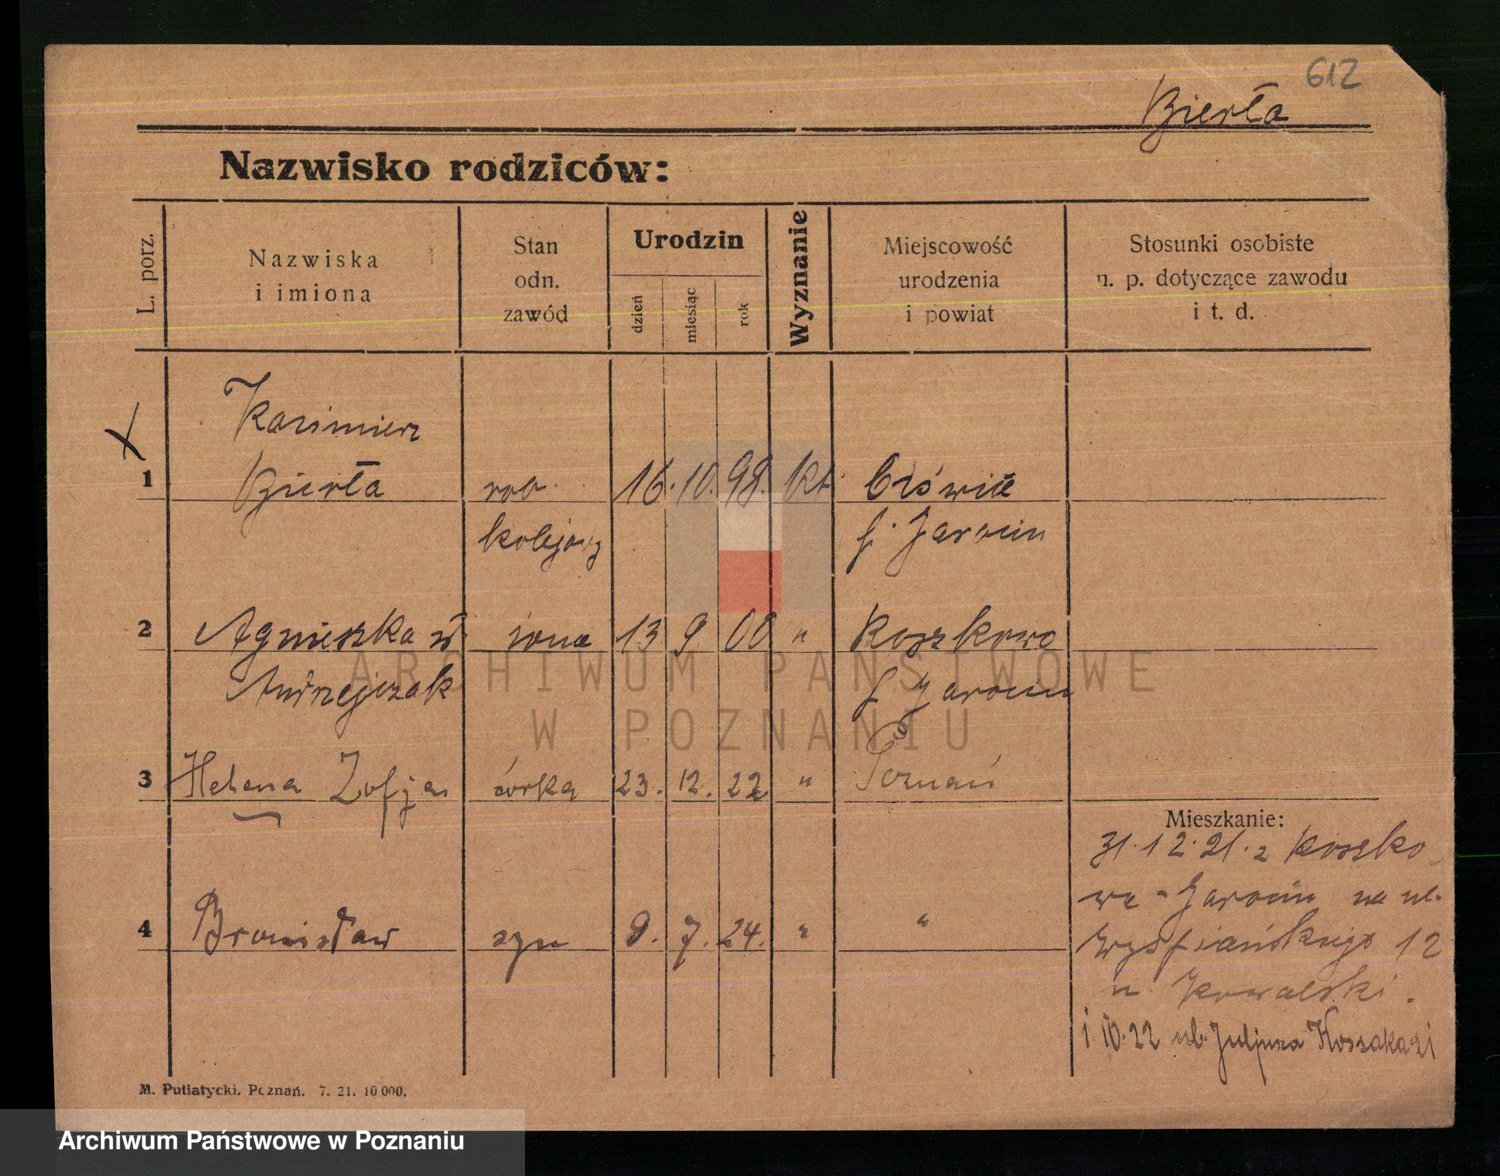 612
Bierła
Nazwisko rodziców:
L. porz.
Nazwiska
i imiona
Stan
odn.
zawód
Urodzin
dzień
miesiąc
rok
Wyznanie
Miejscowość
urodzenia
i powiat
Stosunki osobiste
n. p. dotyczące zawodu
i t. d.
Kazimierz
1 Bierła rob. 16. 10. 98. kt.
kolejowy p. Jarocin
2 Agnieszka żona 13 9 00 " Koszkowo
Andrzejczak p. Jarocin
3 Helena Zofja córka 23. 12. 22 " Poznań
4 Bronisław syn 9. 7. 24. " "
Mieszkanie:
31.12.21. z Koszko
wa - Jarocin na ul.
Wyspiańskiego 12
u Kowalski.
1.10.22 ul. Juljusza Kossaka 21
M. Putiatycki, Poznań. 7. 21. 10 000.
ARCHIWUM PAŃSTWOWE
W POZNANIU
Archiwum Państwowe w Poznaniu